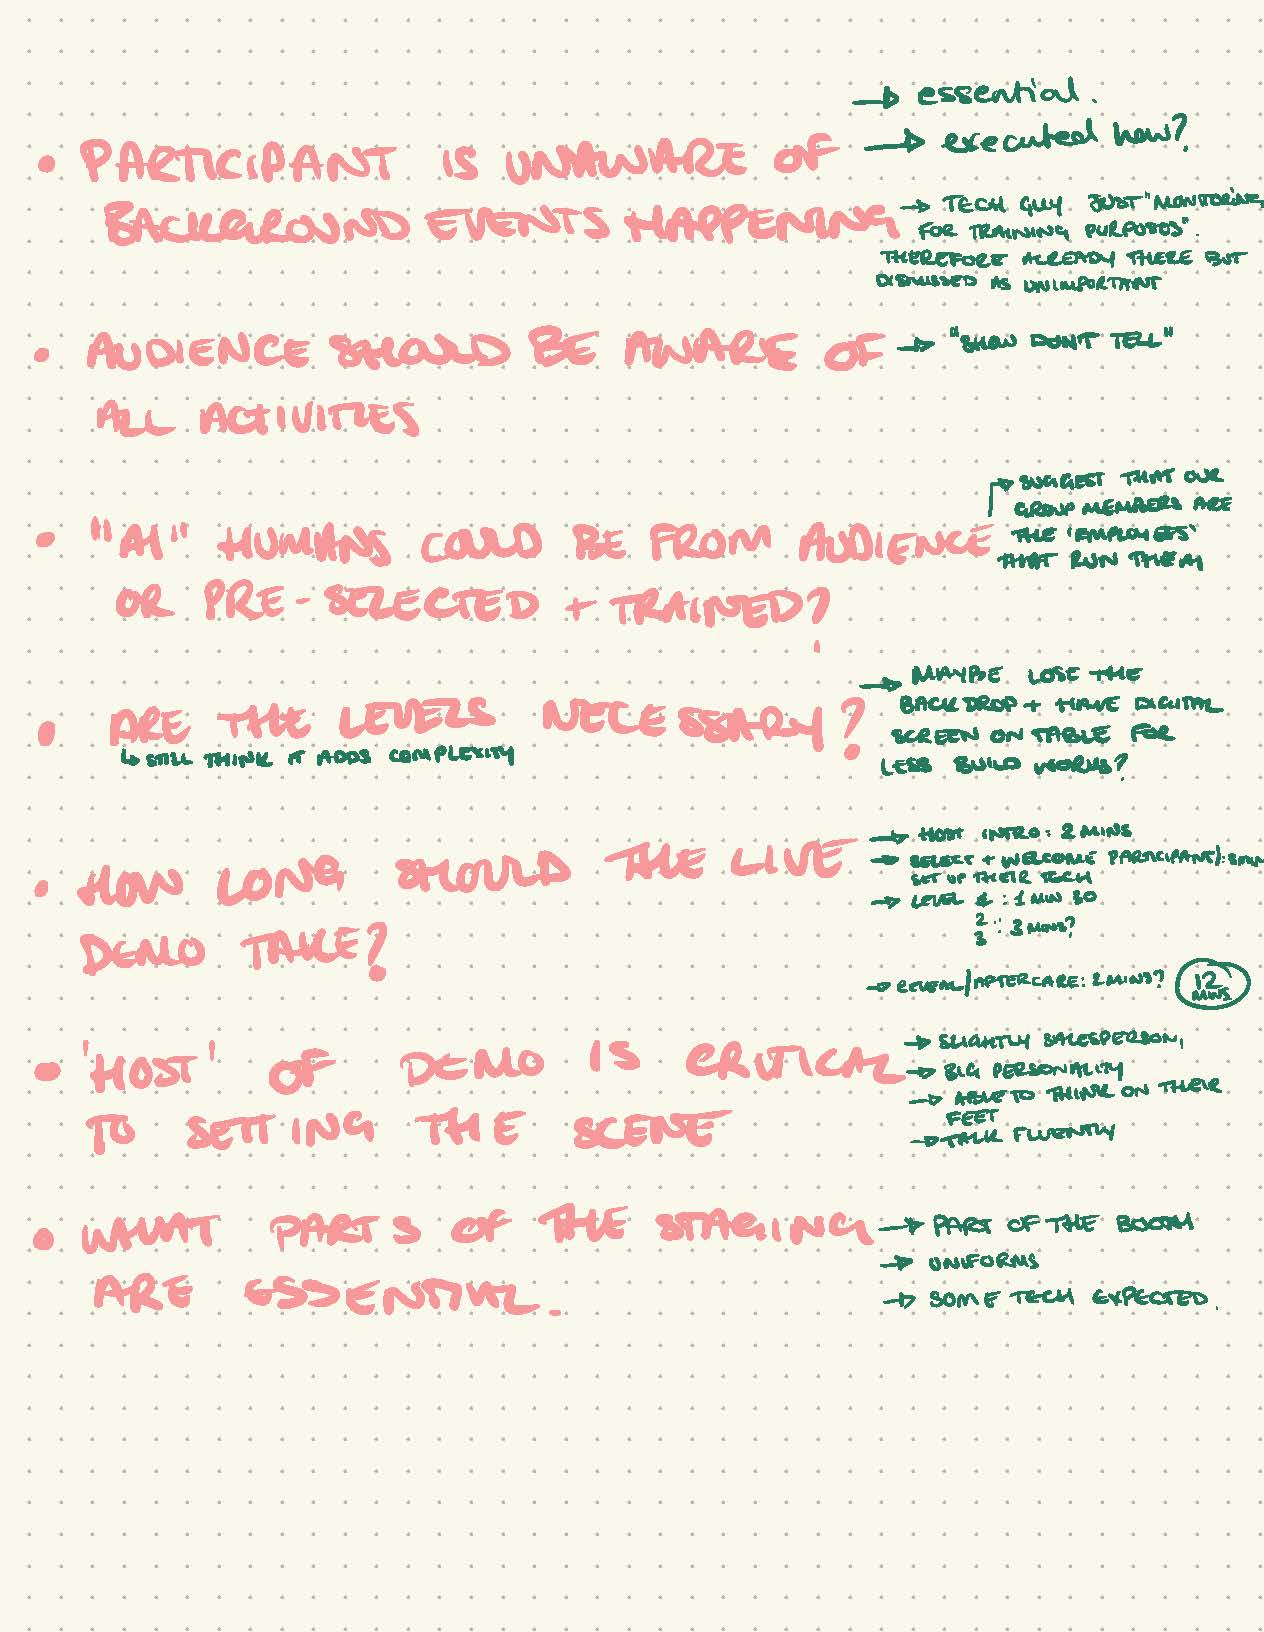 → essential.
→ executed how?
• PARTICIPANT IS UNAWARE OF
BACKGROUND EVENTS HAPPENING
→ TECH GUY JUST "MONITORING
FOR TRAINING PURPOSES".
THEREFORE ALREADY THERE BUT
DISMISSED AS UNIMPORTANT
• AUDIENCE SHOULD BE AWARE OF
ALL ACTIVITIES
→ "SHOW DON'T TELL"
• "AI" HUMANS COULD BE FROM AUDIENCE
OR PRE-SELECTED + TRAINED?
→ SUGGEST THAT OUR
GROUP MEMBERS ARE
THE 'EMPLOYEES'
THAT RUN THEM
• ARE THE LEVELS NECESSARY?
↳ STILL THINK IT ADDS COMPLEXITY
→ MAYBE LOSE THE
BACKDROP + HAVE DIGITAL
SCREEN ON TABLE FOR
LESS BUILD WORKS?
• HOW LONG SHOULD THE LIVE
DEMO TAKE?
→ HOST INTRO: 2 MINS
→ SELECT + WELCOME PARTICIPANT/:
SET UP THEIR TECH
→ LEVEL 1 : 1 MIN 30
2 :
3 3 MINS?
→ REVEAL/AFTERCARE: 2 MINS?
12
MINS
• 'HOST' OF DEMO IS CRITICAL
TO SETTING THE SCENE
→ SLIGHTLY SALESPERSON,
→ BIG PERSONALITY
→ ABLE TO THINK ON THEIR
FEET
→ TALK FLUENTLY
• WHAT PARTS OF THE STAGING
ARE ESSENTIAL.
→ PART OF THE BOOTH
→ UNIFORMS
→ SOME TECH EXPECTED.